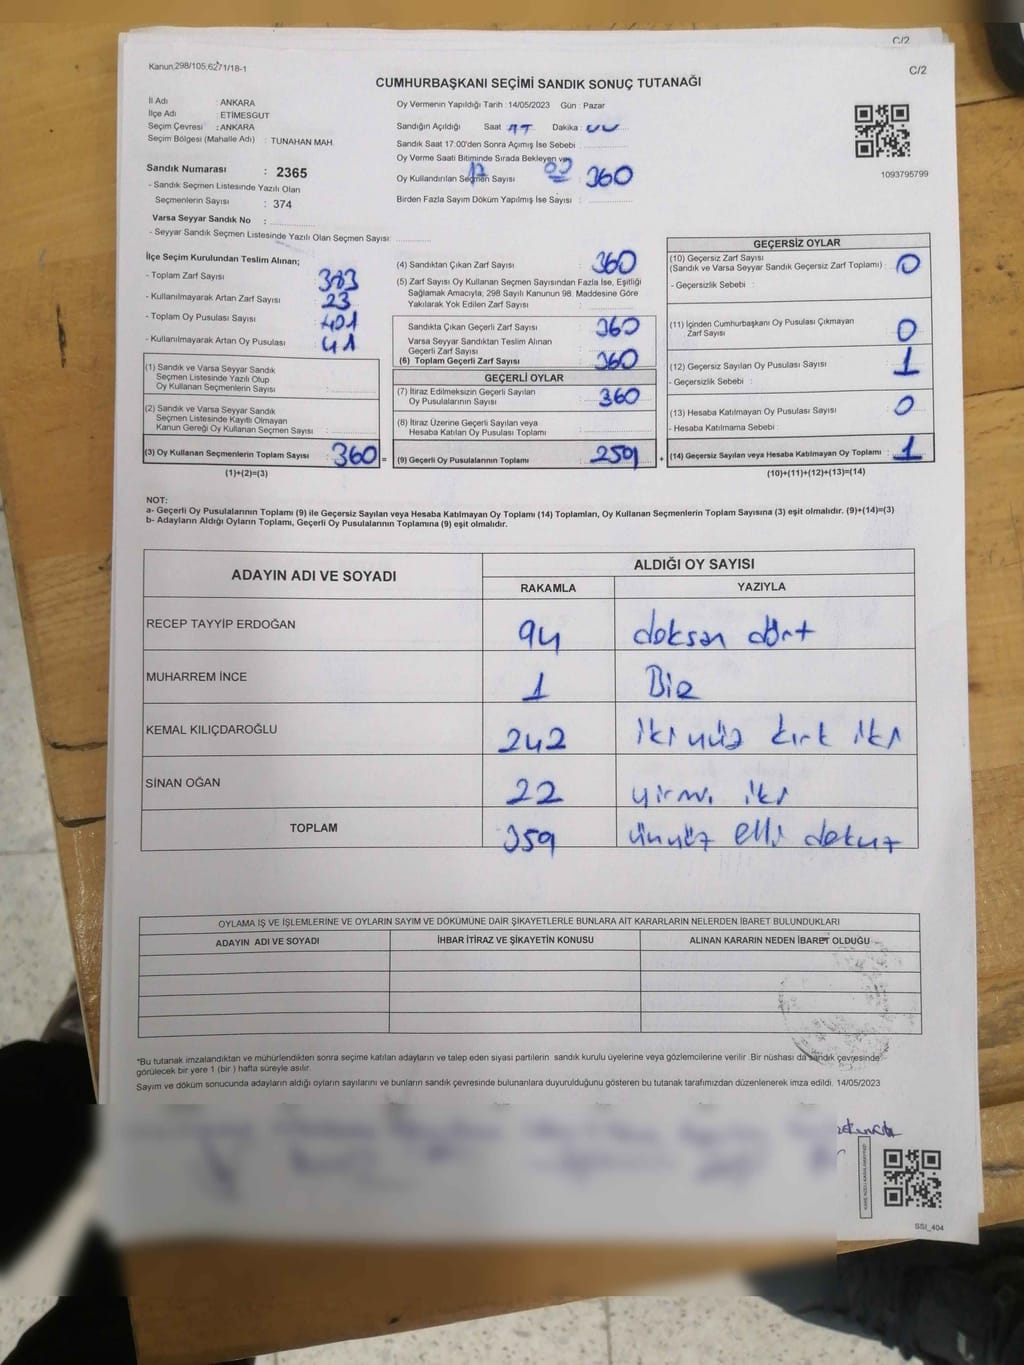 C/2
Kanun 298/105,62/1/18-1
C/2
CUMHURBAŞKANI SEÇİMİ SANDIK SONUÇ TUTANAĞI
İl Adı : ANKARA
İlçe Adı : ETİMESGUT
Seçim Çevresi : ANKARA
Seçim Bölgesi (Mahalle Adı) : TUNAHAN MAH.
Sandık Numarası : 2365
- Sandık Seçmen Listesinde Yazılı Olan
Seçmenlerin Sayısı : 374
Varsa Seyyar Sandık No :
- Seyyar Sandık Seçmen Listesinde Yazılı Olan Seçmen Sayısı:
Oy Vermenin Yapıldığı Tarih : 14/05/2023 Gün : Pazar
Sandığın Açıldığı Saat Dakika :
Sandık Saat 17:00'den Sonra Açımış İse Sebebi :
Oy Verme Saati Bitiminde Sırada Bekleyen ve
17
Oy Kullandırılan Seçmen Sayısı 360
Birden Fazla Sayım Döküm Yapılmış İse Sayısı :
1093795799
İlçe Seçim Kurulundan Teslim Alınan;
- Toplam Zarf Sayısı : 383
- Kullanılmayarak Artan Zarf Sayısı : 23
- Toplam Oy Pusulası Sayısı : 401
- Kullanılmayarak Artan Oy Pusulası : 41
(1) Sandık ve Varsa Seyyar Sandık
Seçmen Listesinde Yazılı Olup
Oy Kullanan Seçmenlerin Sayısı :
(2) Sandık ve Varsa Seyyar Sandık
Seçmen Listesinde Kayıtlı Olmayan
Kanun Gereği Oy Kullanan Seçmen Sayısı :
(3) Oy Kullanan Seçmenlerin Toplam Sayısı : 360 =
(1)+(2)=(3)
(4) Sandıktan Çıkan Zarf Sayısı : 360
(5) Zarf Sayısı Oy Kullanan Seçmen Sayısından Fazla İse, Eşitliği
Sağlamak Amacıyla, 298 Sayılı Kanunun 98. Maddesine Göre
Yakılarak Yok Edilen Zarf Sayısı :
Sandıkta Çıkan Geçerli Zarf Sayısı : 360
Varsa Seyyar Sandıktan Teslim Alınan
Geçerli Zarf Sayısı :
(6) Toplam Geçerli Zarf Sayısı : 360
GEÇERLİ OYLAR
(7) İtiraz Edilmeksizin Geçerli Sayılan
Oy Pusulalarının Sayısı : 360
(8) İtiraz Üzerine Geçerli Sayılan veya
Hesaba Katılan Oy Pusulası Toplamı :
(9) Geçerli Oy Pusulalarının Toplamı : 259 +
GEÇERSİZ OYLAR
(10) Geçersiz Zarf Sayısı
(Sandık ve Varsa Seyyar Sandık Geçersiz Zarf Toplamı) : 0
- Geçersizlik Sebebi :
(11) İçinden Cumhurbaşkanı Oy Pusulası Çıkmayan
Zarf Sayısı : 0
(12) Geçersiz Sayılan Oy Pusulası Sayısı : 1
- Geçersizlik Sebebi :
(13) Hesaba Katılmayan Oy Pusulası Sayısı : 0
- Hesaba Katılmama Sebebi :
(14) Geçersiz Sayılan veya Hesaba Katılmayan Oy Toplamı : 1
(10)+(11)+(12)+(13)=(14)
NOT:
a- Geçerli Oy Pusulalarının Toplamı (9) ile Geçersiz Sayılan veya Hesaba Katılmayan Oy Toplamı (14) Toplamları, Oy Kullanan Seçmenlerin Toplam Sayısına (3) eşit olmalıdır. (9)+(14)=(3)
b- Adayların Aldığı Oyların Toplamı, Geçerli Oy Pusulalarının Toplamına (9) eşit olmalıdır.
ADAYIN ADI VE SOYADI
ALDIĞI OY SAYISI
RAKAMLA YAZIYLA
RECEP TAYYİP ERDOĞAN 94 doksan dört
MUHARREM İNCE 1 Bir
KEMAL KILIÇDAROĞLU 242 iki yüz kırk iki
SİNAN OĞAN 22 yirmi iki
TOPLAM 359 üçyüz elli dokuz
OYLAMA İŞ VE İŞLEMLERİNE VE OYLARIN SAYIM VE DÖKÜMÜNE DAİR ŞİKAYETLERLE BUNLARA AİT KARARLARIN NELERDEN İBARET BULUNDUKLARI
ADAYIN ADI VE SOYADI İHBAR İTİRAZ VE ŞİKAYETİN KONUSU ALINAN KARARIN NEDEN İBARET OLDUĞU
*Bu tutanak imzalandıktan ve mühürlendikten sonra seçime katılan adayların ve talep eden siyasi partilerin sandık kurulu üyelerine veya gözlemcilerine verilir .Bir nüshası da sandık çevresinde
görülecek bir yere 1 (bir ) hafta süreyle asılır.
Sayım ve döküm sonucunda adayların aldığı oyların sayılarını ve bunların sandık çevresinde bulunanlara duyurulduğunu gösteren bu tutanak tarafımızdan düzenlenerek imza edildi. 14/05/2023
SSI_404